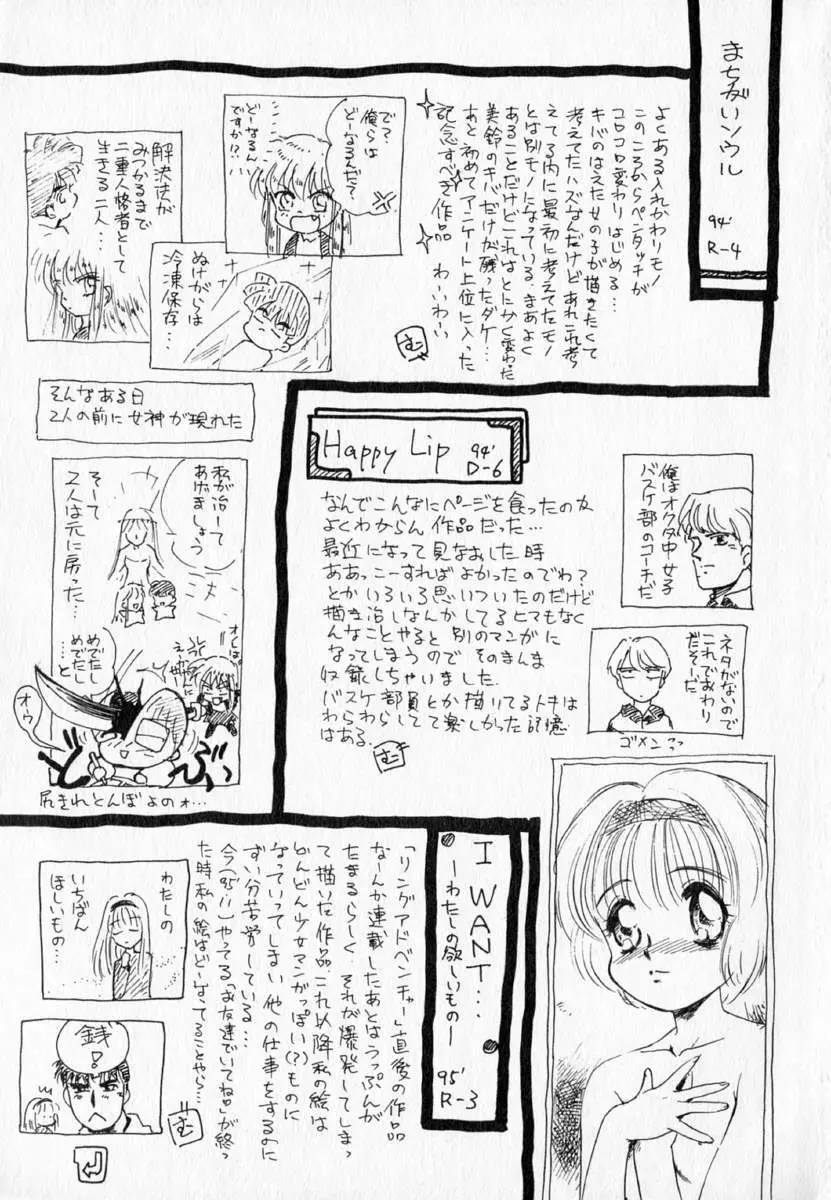 まちがいソウル
94'
R-4
よくある入れかわりモノ
このころからペンタッチが
コロコロ変わりはじめる…
キバのはえた女の子が描きたくて
考えてたハズなんだけどあれこれ考
えてる内に最初に考えてたモノ
とは別モノになっている。まあよく
あることだけどこれはとにかく変わった
美鈴のキバだけが残ったダケ…
あと初めてアンケート上位に入った
記念すべき作品 わーいわーい
む
で?
俺らは
どーなるんだ?
どーなるん
ですか!?
ぬけがらは
冷凍保存…
解決法が
みつかるまで
二重人格者として
生きる二人…
そんなある日
2人の前に女神が現れた
私が治して
あげましょう
そして
2人は元に戻った…
めでたし
めでたし
…と
オウ
尻きれとんぼよのォ…
Happy Lip
94'
D-6
なんでこんなにページを食ったのか
よくわからん作品だった…
最近になって見なおした時
ああっこーすればよかったのでわ?
とかいろいろ思いついたのだけど
描き治しなんかしてるヒマもなく
んなことやると別のマンガに
なってしまうのでそのまんま
収録しちゃいました。
バスケ部員とか描いてるトキは
わらわらしてて楽しかった記憶
はある。
む
俺はオクタ中女子
バスケ部のコーチだ
ネタがないので
これでおわり
だそーだ
ゴメンっっ
I WANT…
ーわたしの欲しいものー
95'
R-3
「リングアドベンチャー」直後の作品
なーんか連載したあとはうっぷんが
たまるらしく、それが爆発してしまっ
て描いた作品。これ以降私の絵は
どんどん少女マンガっぽい(?)ものに
なっていってしまい他の仕事をするのに
ずい分苦労している…
今(95'11)やってる「お友達でいてね」が終っ
た時私の絵はどーなってることやら…
む
わたしの
いちばん
ほしいもの…
銭!